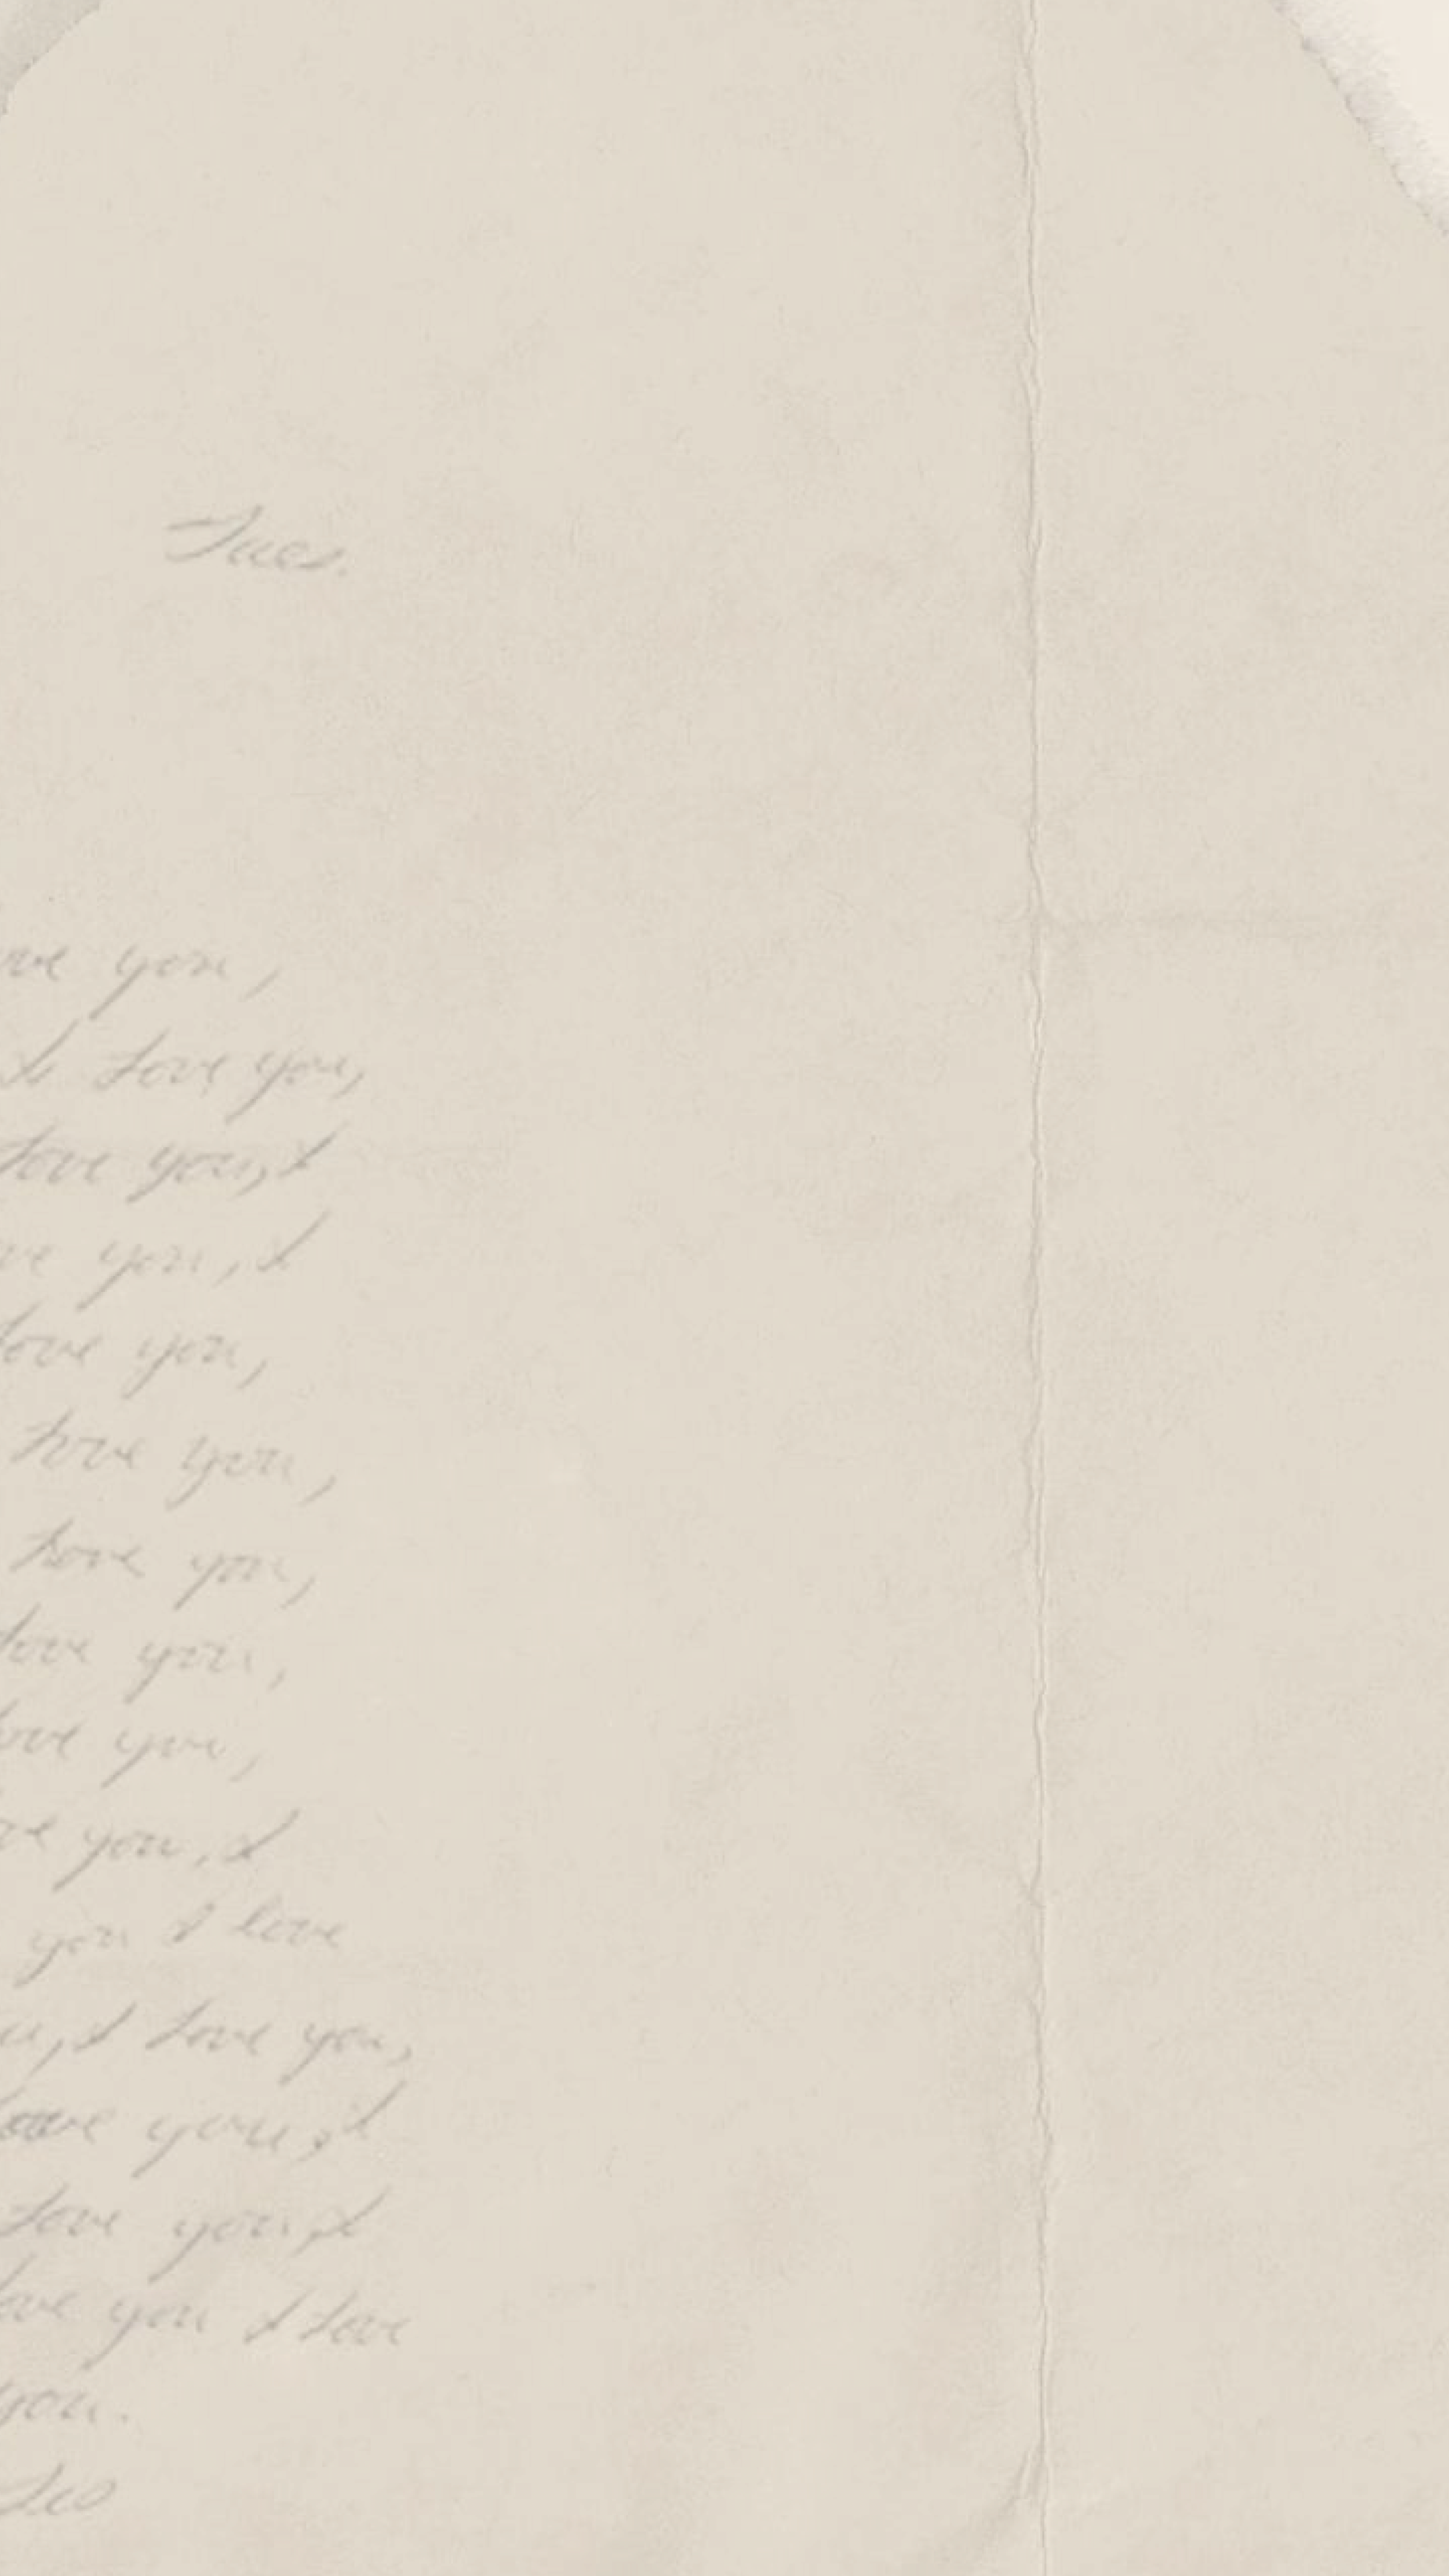 Tues.
ve you,
I love you,
love you, I
ve you, I
love you,
love you,
love you,
love you,
ove you,
ve you, I
you I love
u, I love you,
love you, I
love you, I
ove you I love
you.